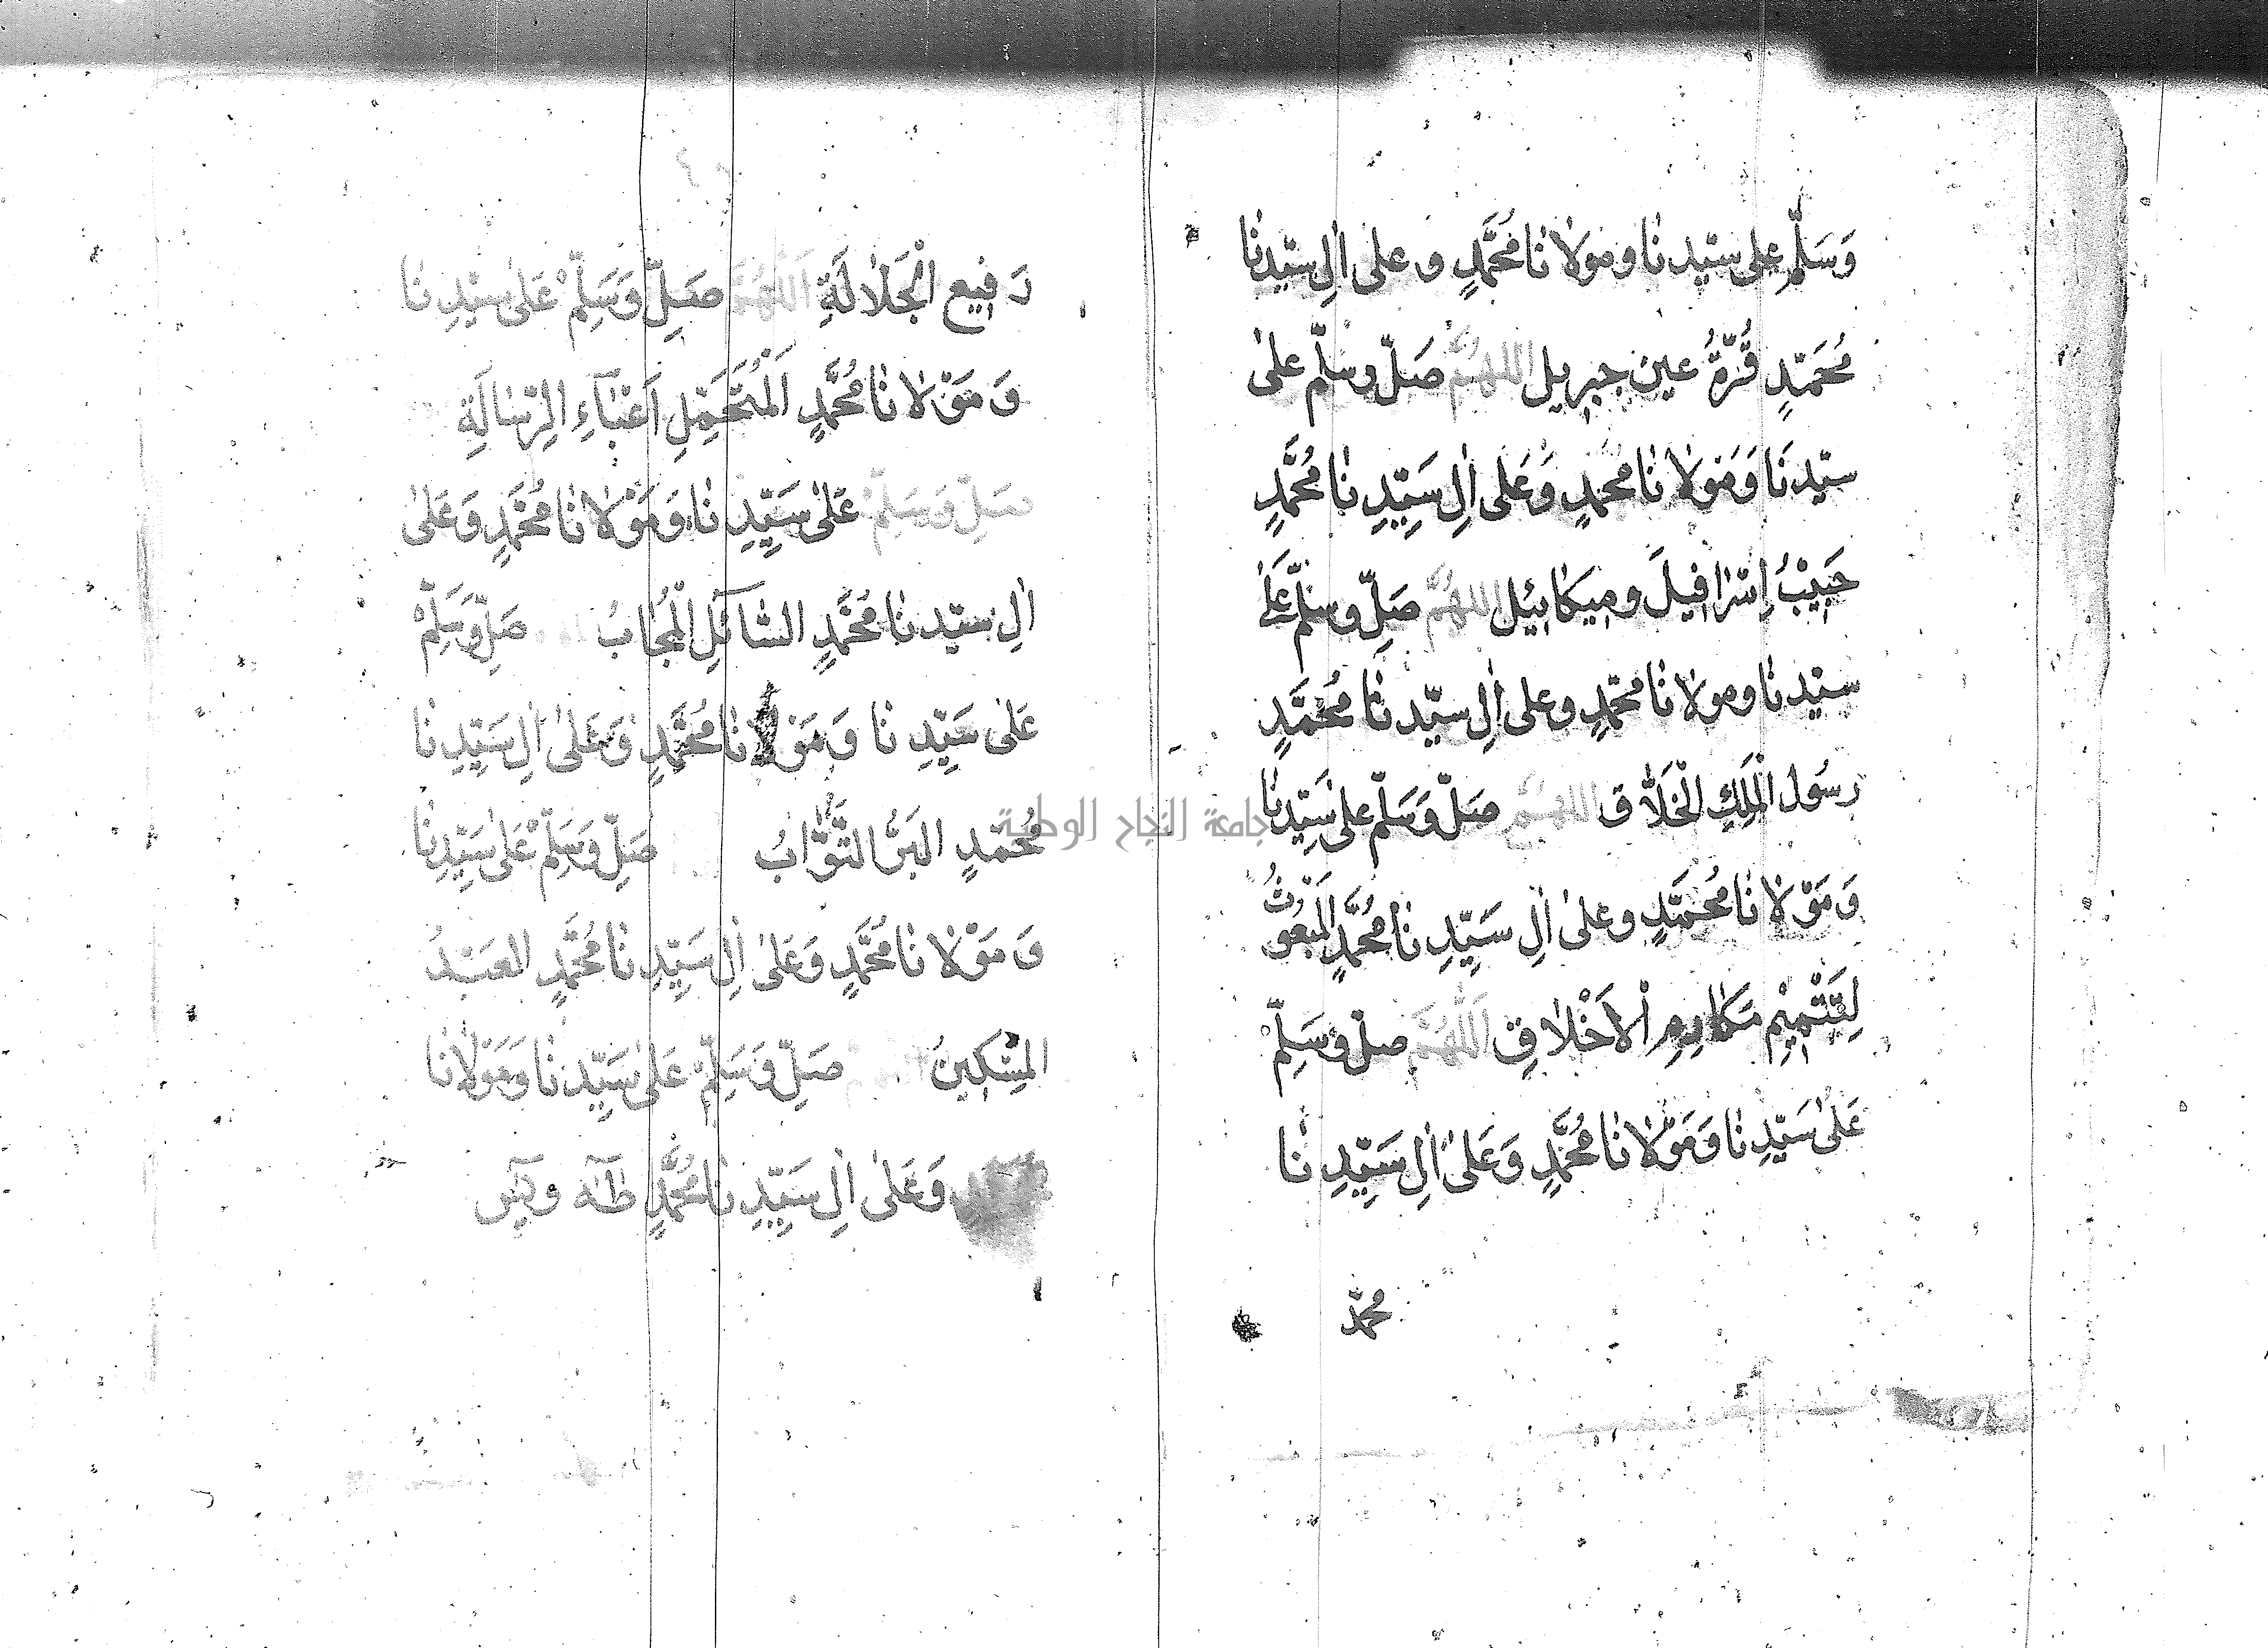 وَسَلِّمْ على سيّدنا ومولانا محمَّدٍ وعلى اٰلِ سيّدِنا
مُحَمَّدٍ قُرَّةُ عين جبريل اللهُمَّ صَلّ وسلّم على
سيّدنَا وَمَوْلانا محمدٍ وَعَلى اٰلِ سَيِّدِنا مُحَمَّدٍ
حَبِيْبُ اِسْرَافيلَ وميكائيل اللهُمَّ صَلِّ وسلّم عَلٰى
سيّدنا ومولانا محمّدٍ وعلى اٰلِ سيّدنا مُحَمَّدٍ
رسُول الْمَلِكِ الْخَلَّاق اللهُمَّ صَلّ وَسَلّم على سَيّدِنا
وَمَوْلانا مُحَمَّدٍ وعلىٰ اٰلِ سَيِّدِنا مُحَمَّدٍ الْمَبْعُوْثُ
لِتَتْمِيْمِ مَكَارِمِ الْاَخْلَاقِ اَللّٰهُمَّ صلّ وَسَلِّمْ
عَلىٰ سَيّدِنا وَمَوْلانا مُحَمَّدٍ وَعَلىٰ اٰلِ سَيِّدِنا
محمّد
رَفيع الْجَلالَةِ اَللّٰهُمَّ صَلِّ وَسَلِّمْ عَلىٰ سيّدِنا
وَمَوْلانا مُحَمَّدٍ اَلْمُتَحَمِّلِ اَعْبَآءِ الرِّسَالَةِ
صَلِّ وَسَلِّمْ عَلىٰ سَيِّدِنا وَمَوْلانا مُحَمَّدٍ وَعَلىٰ
اٰلِ سيّدنا مُحَمَّدٍ السَّآئلِ الْمُجَابُ صَلِّ وَسَلِّمْ
عَلىٰ سَيِّدِنا وَمَوْلانا مُحَمَّدٍ وَعَلىٰ اٰلِ سَيِّدِنا
مُحَمَّدٍ البَرّ التَّوَّابُ صَلِّ وَسَلِّمْ عَلىٰ سَيِّدِنا
وَمَوْلانا مُحَمَّدٍ وَعَلىٰ اٰلِ سَيِّدِنا مُحَمَّدٍ العَبْدُ
المِسْكينُ صَلِّ وَسَلِّمْ عَلىٰ سَيِّدنا وَمَوْلانا
وَعَلىٰ اٰلِ سَيِّدِنا مُحَمَّدٍ طٰهٰ ويٰس
جامعة النجاح الوطنية